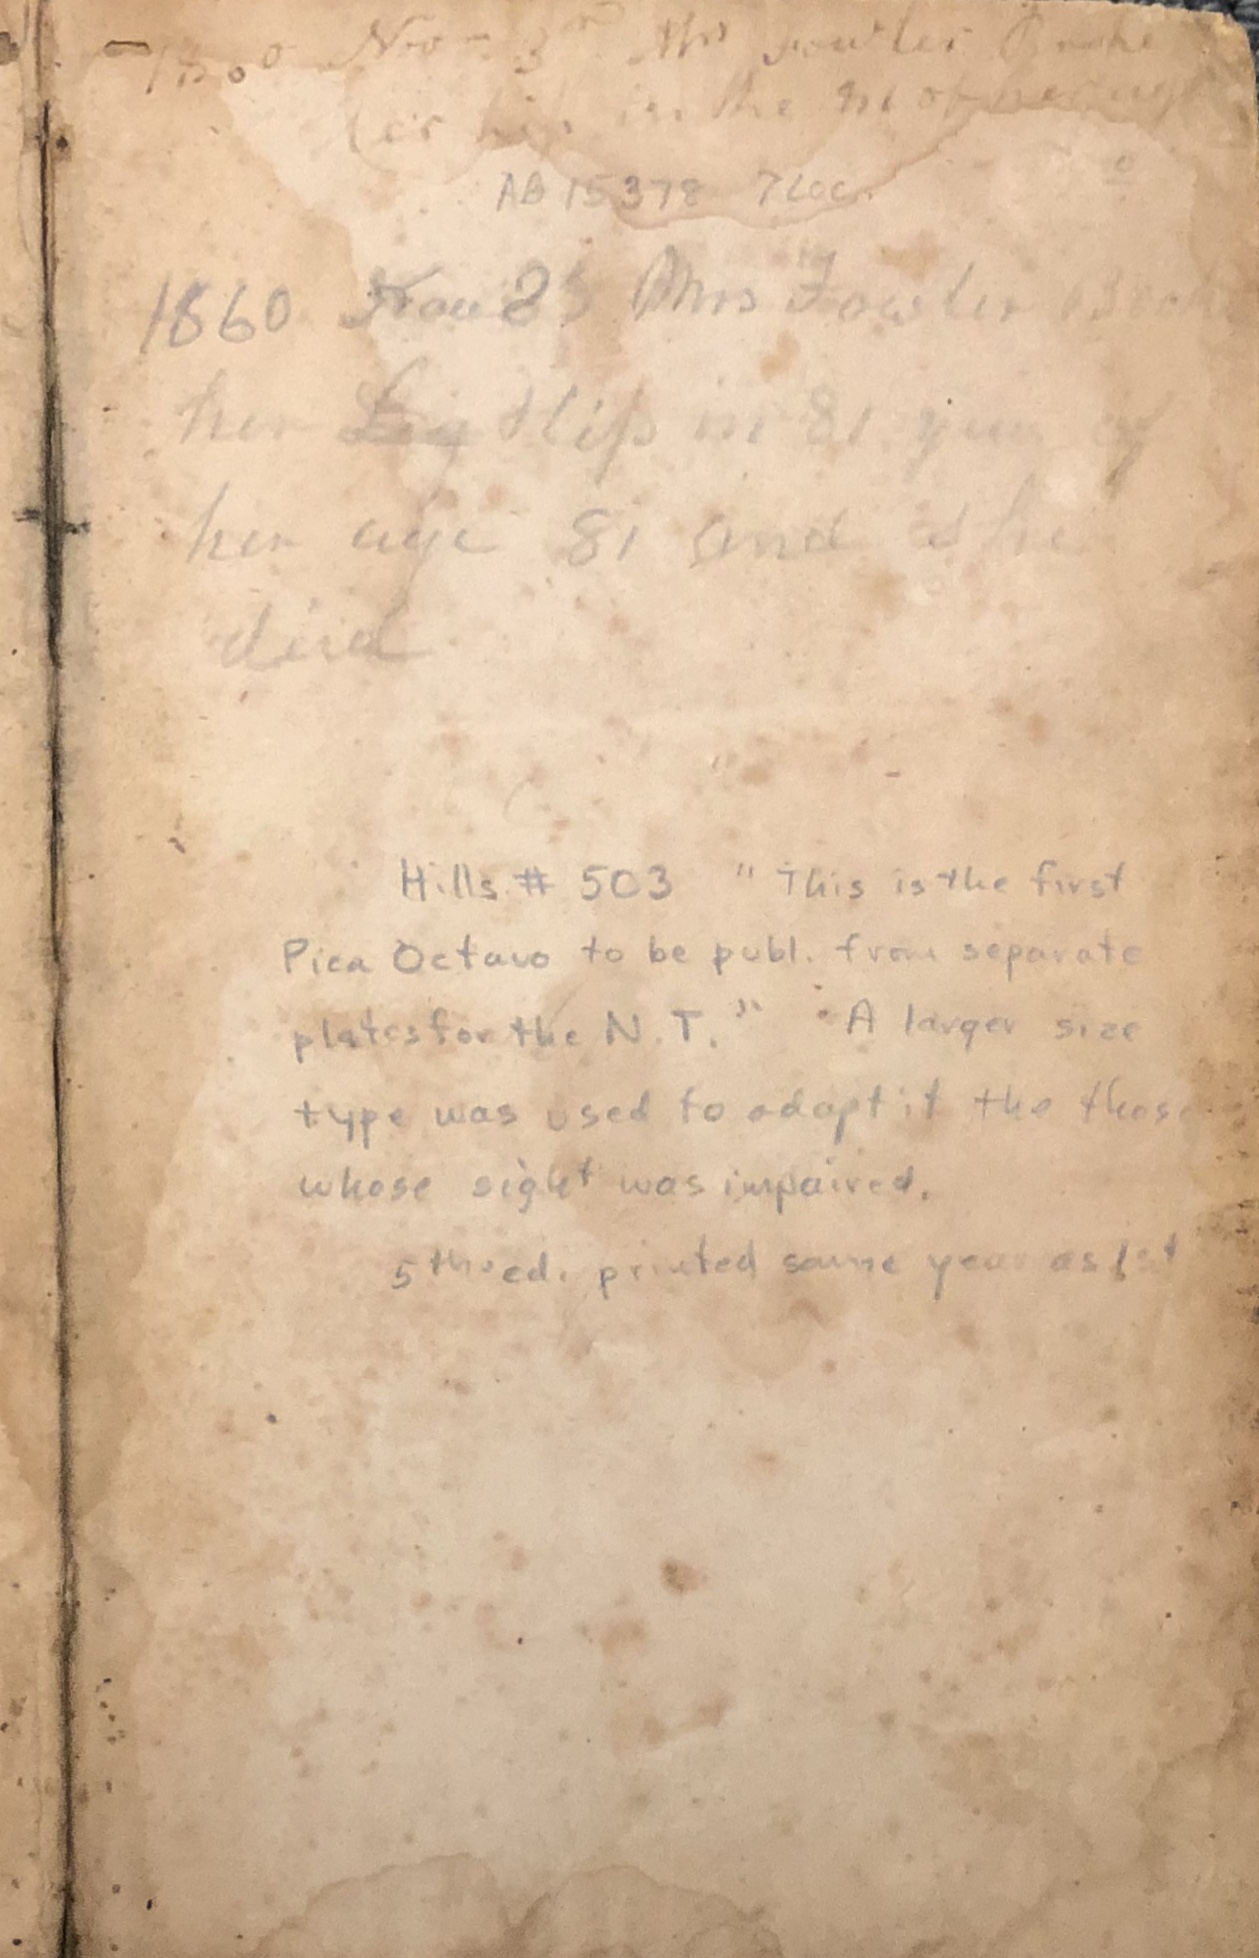 1860 Nov - 3 Mrs Fowler Broke
her hip in the 81 of her age
AB 15378
1860 Nov 23 Mrs Fowler Broke
her Leg Hip in 81 year of
her age 81 and she
died
Hills # 503 "This is the first
Pica Octavo to be publ. from separate
plates for the N.T." A larger size
type was used to adapt it the those
whose sight was impaired.
5th ed. printed same year as 1st